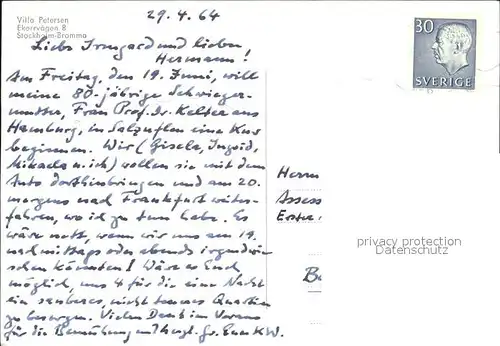 29.4.64
Villa Petersen
Ekorrvägen 8
Stockholm-Bromma
Liebe Irmgard und lieber
Hermann!
Am Freitag, den 19. Juni, will
meine 80-jährige Schwieger-
mutter, Frau Prof. Dr. Kelter aus
Hamburg, in Salzuflen eine Kur
beginnen. Wir (Gisela, Ingrid,
Mikaela u. ich) wollen sie mit dem
Auto dorthinbringen und am 20.
morgens nach Frankfurt weiter-
fahren, wo ich zu tun habe. Es
wäre nett, wenn wir uns am 19.
nachmittags oder abends irgendwie
sehen könnten! Wäre es Euch
möglich, uns 4 für die eine Nacht
ein sauberes, nicht teures Quartier
zu besorgen. Vielen Dank im Voraus
für die Bemühungen! Herzl. Gr. Euer KW.
30
SVERIGE
Herrn
Assess
Erster
privacy protection
Datenschutz